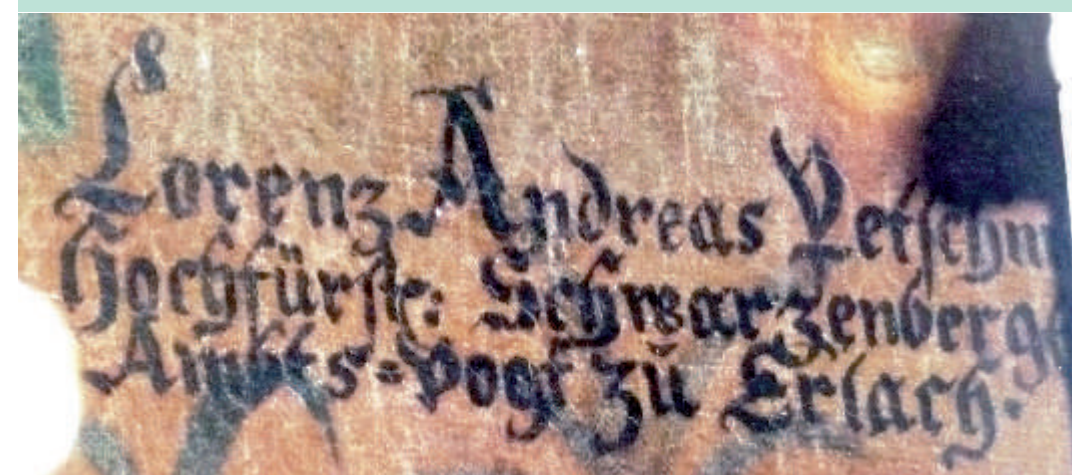 Lorenz Andreas
Hochfürstl: Schwarzenberg
Ambts=Vogt zŭ Erlach.